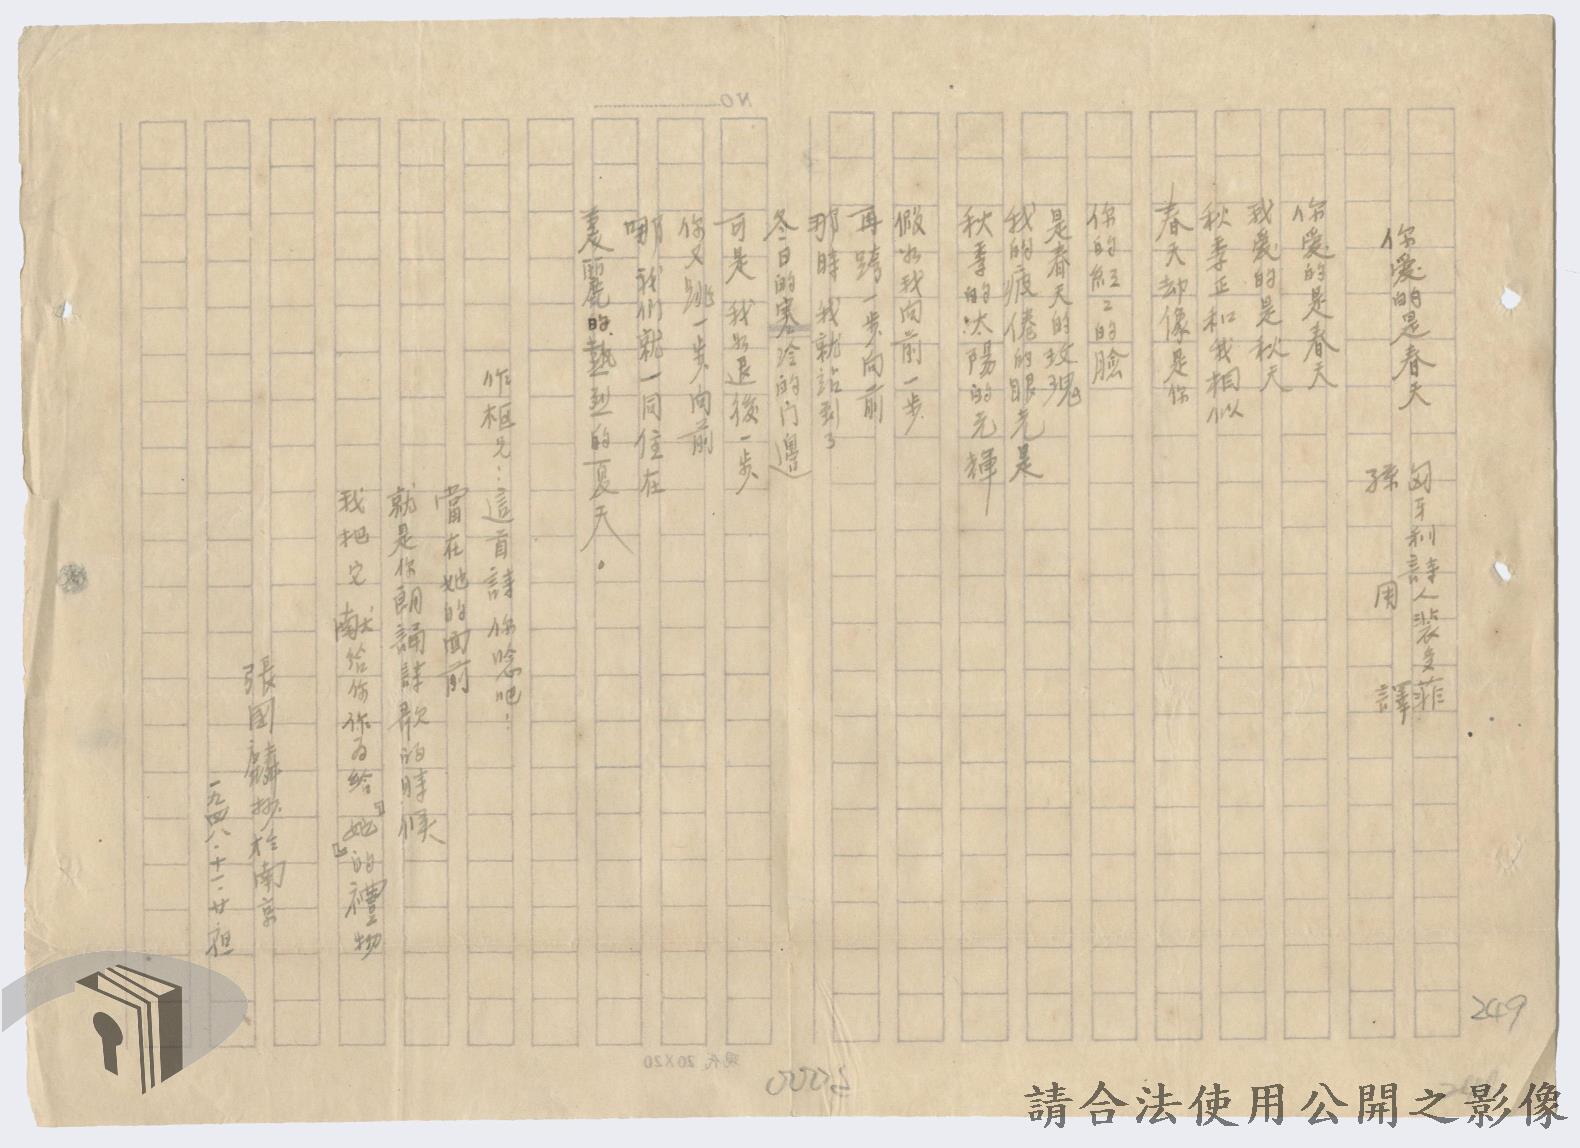 你愛的是春天
匈牙利詩人裴多菲
孫 用 譯
你愛的是春天
我愛的是秋天
秋季正和我相似
春天却像是你
你的紅々的臉
是春天的玫瑰
我的疲倦的眼光是
秋季的太陽的光輝
假如我向前一步
再跨一步向前
那時 我就站到了
冬日的寒冷的门邊
可是 我如退後一步
你又跳一步向前
哪 我們就一同住在
美麗的熱烈的夏天。
作樞兄:這首詩 你唸吧!
當在她的面前
就是你朗誦詩歌的時候
我把它 献给你 你為给『她』的禮物
張國麟抄於南京
一九四八.十一.廿
NO
現代 20X20
249
請合法使用公開之影像